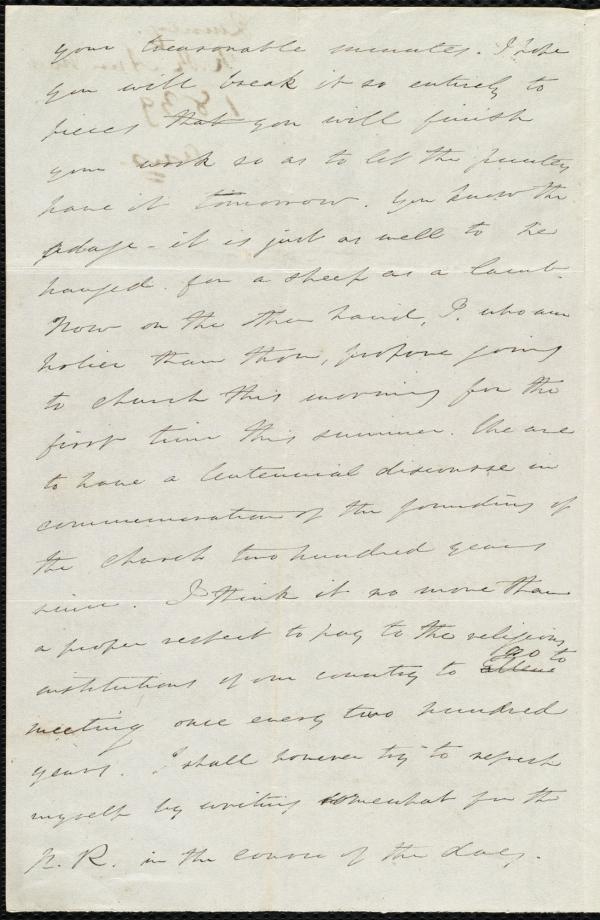 your treasonable minutes. I hope
you will break it so entirely to
pieces that you will finish
your work so as to let the printers
have it tomorrow. You know the
adage - it is just as well to be
hanged for a sheep as a lamb.
Now on the other hand, I, who am
holier than thou, propose going
to church this morning for the
first time this summer. We are
to have a Centennial discourse in
commemoration of the founding of
the church two hundred years
since. I think it no more than
a proper respect to pay to the religious
institutions of our country to go to
meeting once every two hundred
years. I shall however try to refresh
myself by writing somewhat for the
N. R. in the course of the day.
Quincy.
1839